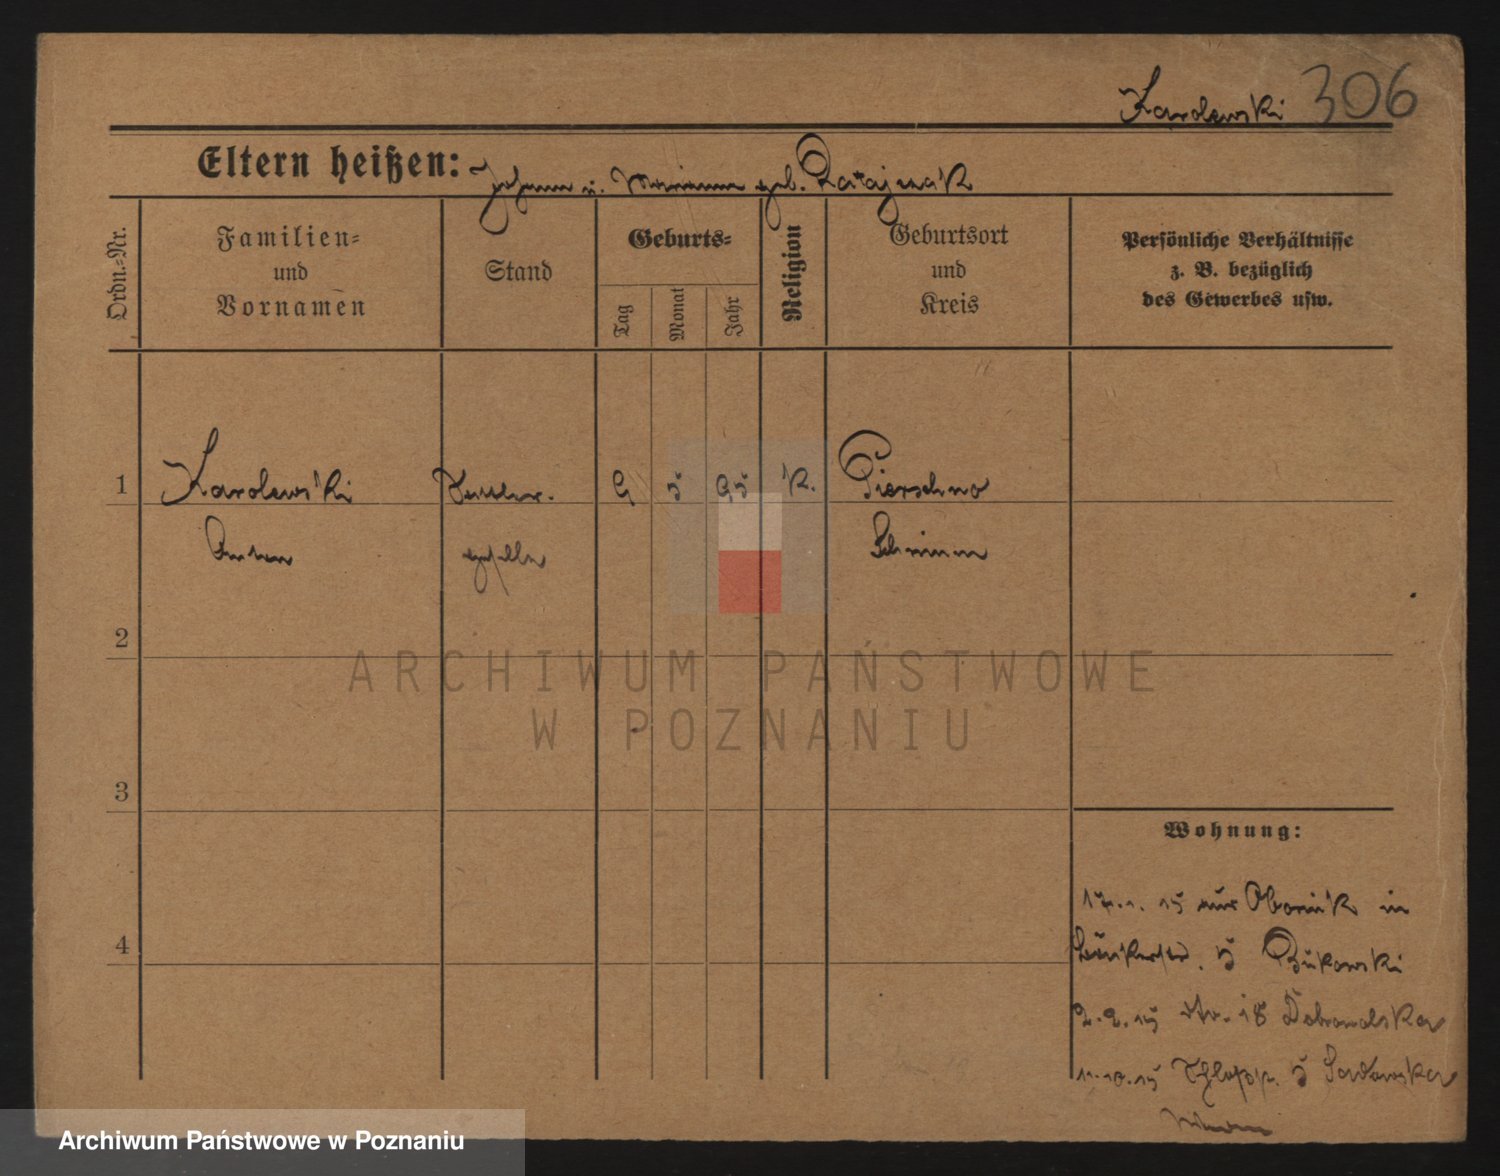 Karolewski 306
Eltern heißen: Johann u. Marianna geb. Ratajczak
Ordn.=Nr.
Familien=
und
Vornamen
Stand
Geburts=
Tag
Monat
Jahr
Religion
Geburtsort
und
Kreis
Persönliche Verhältnisse
z. B. bezüglich
des Gewerbes usw.
1 Karolewski Sattler. 9 5 95 K. Pierschno
Anton geselle Schrimm
2
3
4
Wohnung:
17.1.15 aus Obornik in
5 Bukowski
2.2.15 18 Dobrowolska
11.10.15 5 Sadowska
ARCHIWUM PAŃSTWOWE
W POZNANIU
Archiwum Państwowe w Poznaniu